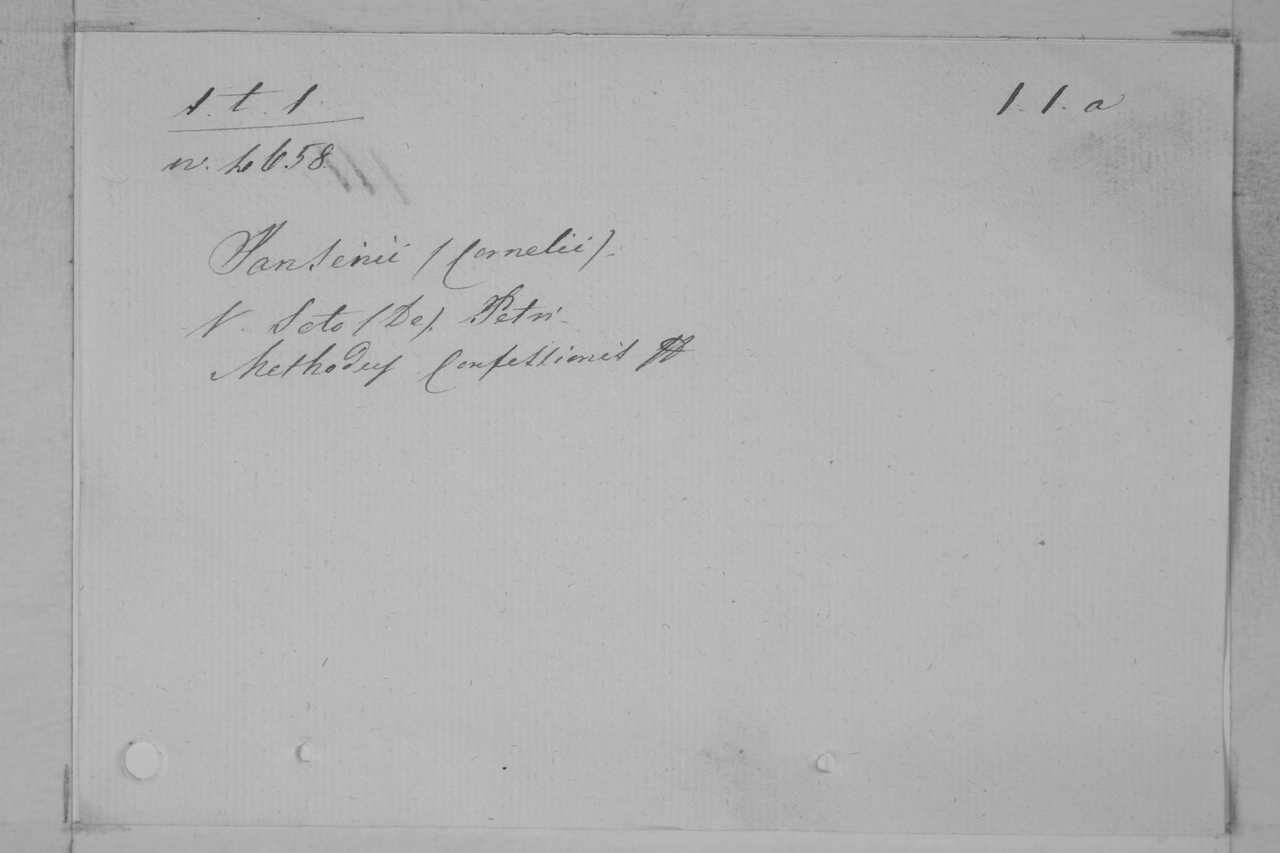 1. t. 1. 1. 1. a
n. 4658
Jansenii (Cornelii).
V. Soto (De), Petri.
Methodus Confessionis